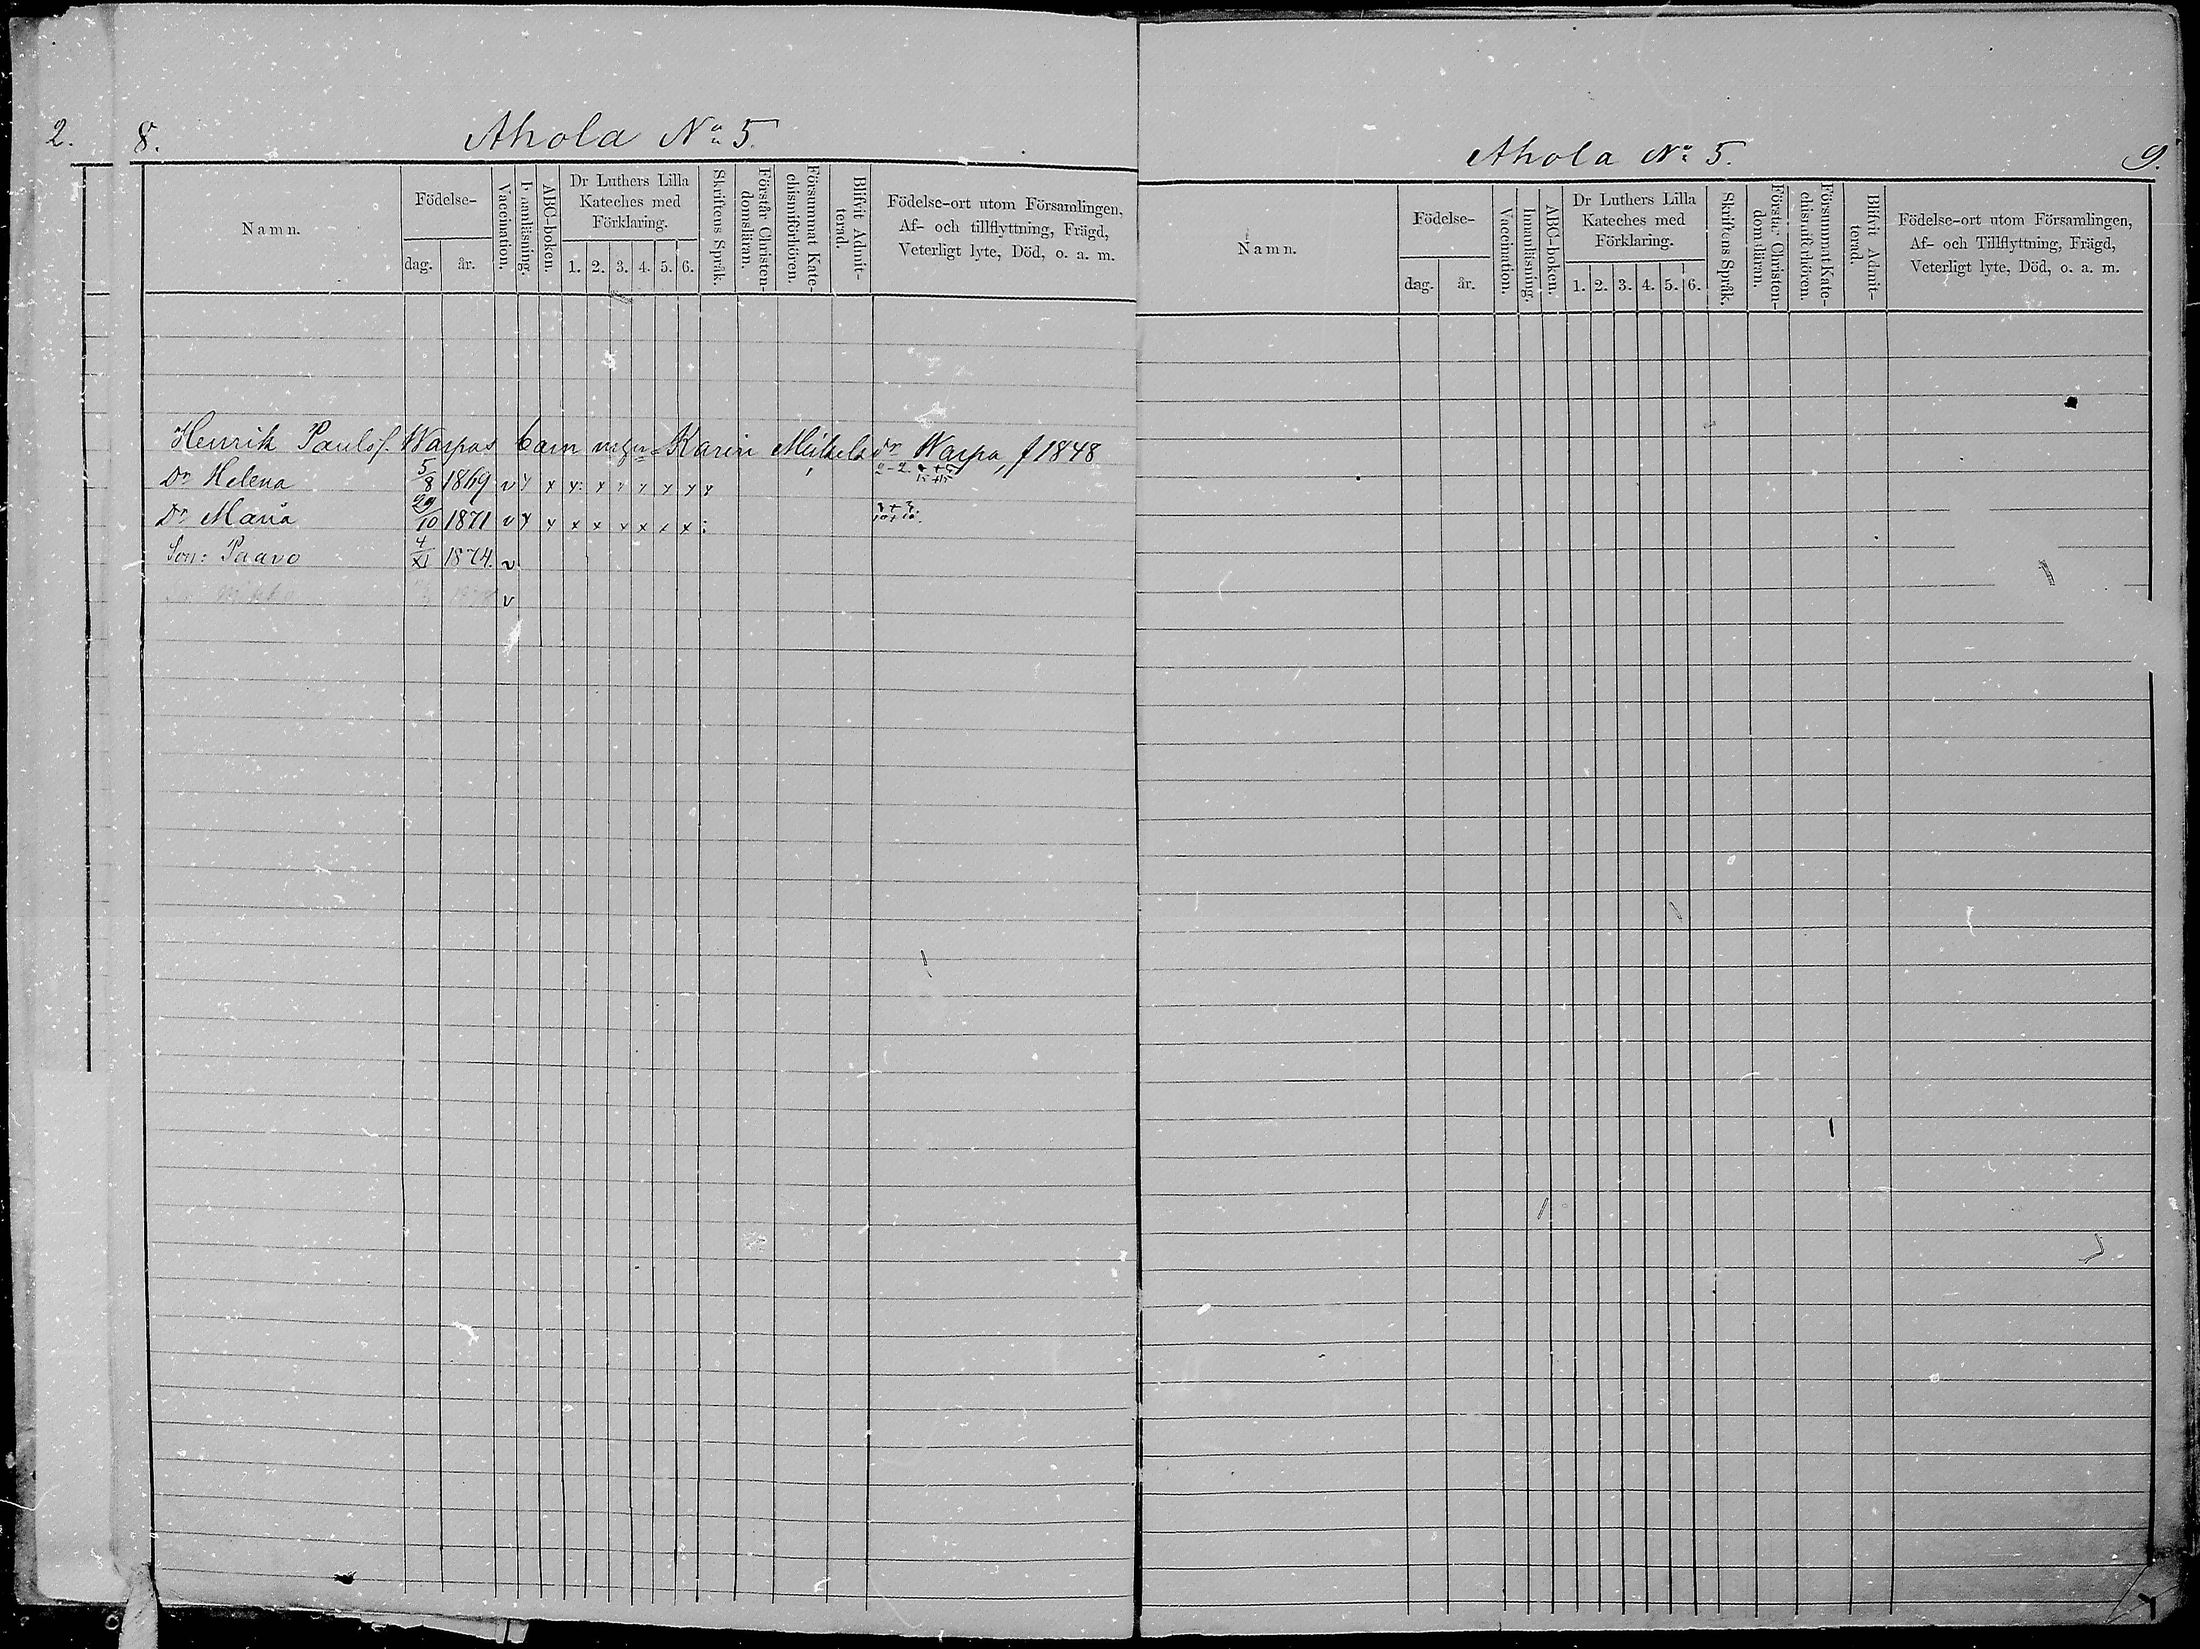 2.
8. Ahola No 5.
Namn.
Födelse-
dag. år.
Vaccination.
Innanläsning.
ABC-boken.
Dr Luthers Lilla
Kateches med
Förklaring.
1. 2. 3. 4. 5. 6.
Skriftens Språk.
Förstår Christen-
domsläran.
Försummat Kate-
chismiförhören.
Blifvit Admit-
terad.
Födelse-ort utom Församlingen,
Af- och tillflyttning, Frägd,
Veterligt lyte, Död, o. a. m.
Henrik Paulsf. Warpas barn Karin Mikelsdr Warpa, f 1848
Dr Helena 5/8 1869 v x x x x x x x x x
Dr Maria 29/10 1871 v x x x x x x x x
Son: Paavo 4/XI 1874. v
v
Ahola No 5.
9.
Namn.
Födelse-
dag. år.
Vaccination.
Innanläsning.
ABC-boken.
Dr Luthers Lilla
Kateches med
Förklaring.
1. 2. 3. 4. 5. 6.
Skriftens Språk.
Förstår Christen-
domsläran.
Försummat Kate-
chismiförhören.
Blifvit Admit-
terad.
Födelse-ort utom Församlingen,
Af- och Tillflyttning, Frägd,
Veterligt lyte, Död, o. a. m.